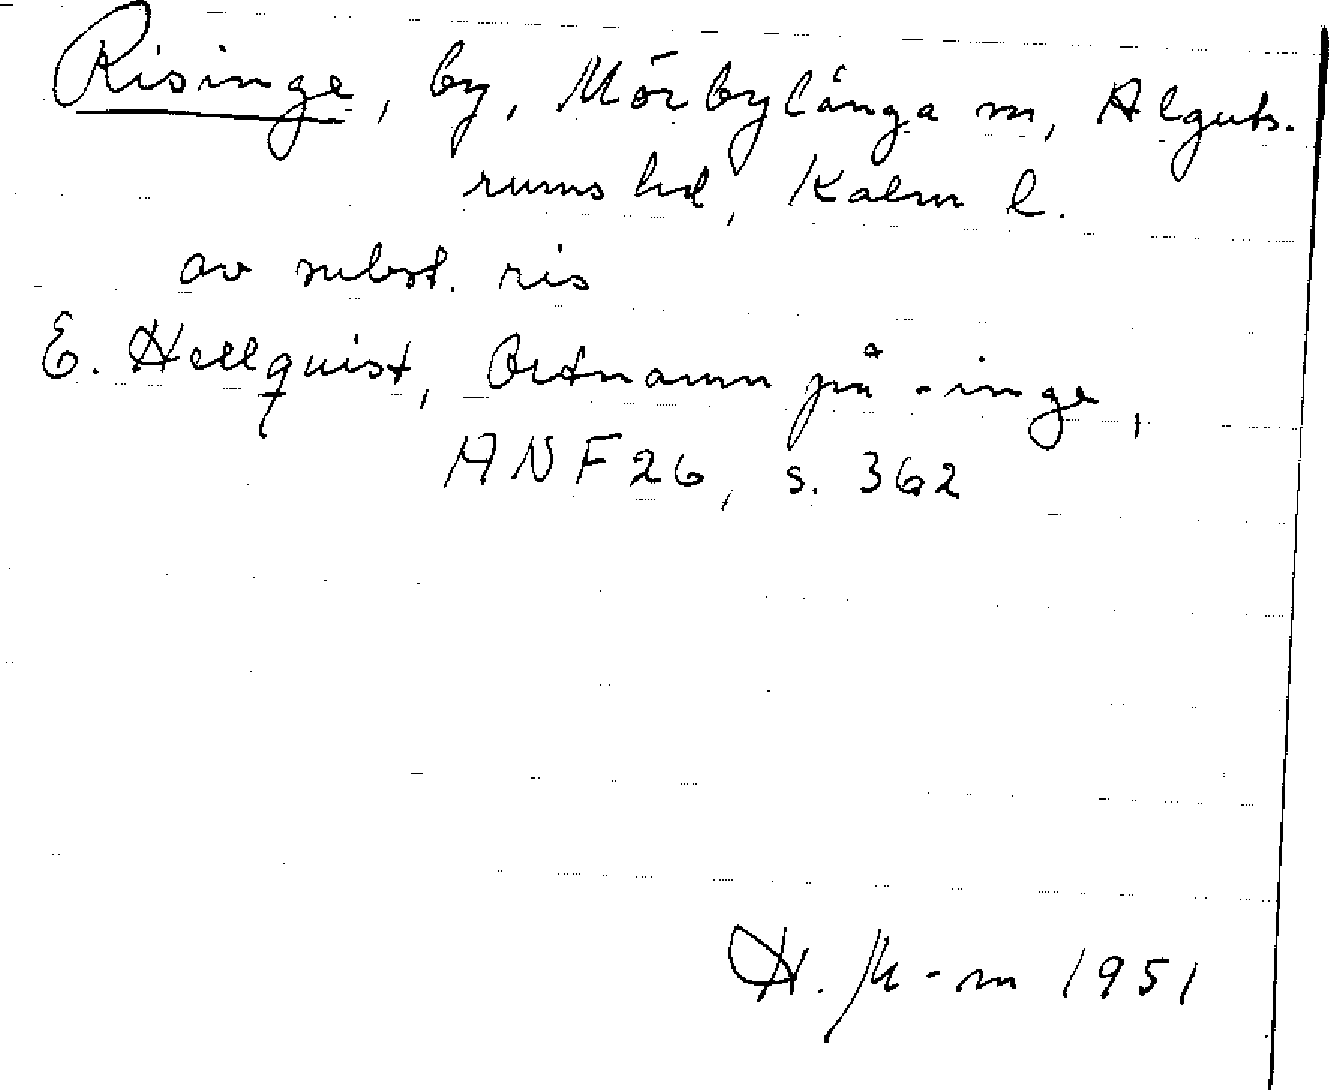 Risinge, by, Mörbylånga sn, Alguts-
rums hd, Kalm l.
av subst. ris
E. Hellquist, Ortnamn på -inge,
ANF 26, s. 362
H. -m 1951